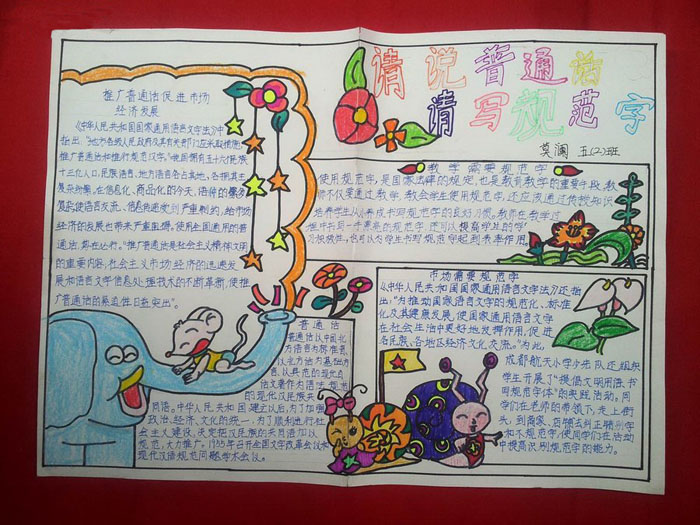 请说普通话
请写规范字
莫澜 五(2)班
推广普通话促进市场
经济发展
《中华人民共和国国家通用语言文字法》中
指出:“地方各级人民政府及其有关部门应采取措施,
推广普通话和推行规范汉字。”我国拥有五十六个民族
十三亿人口,民族语言、地方语言各占其地,各拥其主
复杂纷繁,在信息化、商品化的今天,语种的繁多
复杂使语言交流、信息传递受到严重制约,给市场
经济的发展也带来严重阻碍。使用全国通用的普
通话,势在必行。“推广普通话是社会主义精神文明
的重要内容,社会主义市场经济的迅速发
展和语言文字信息处理技术的不断革新,使推
广普通话的紧迫性日益突出”。
教学需要规范字
使用规范字,是国家法律的规定,也是教育教学的重要手段,教
师不仅要通过教学,教会学生使用规范字,还应该通过传授知识
培养学生从小养成书写规范字的良好习惯。教师在教学过
程中书写一手漂亮的规范字,还可以提高学生的学
习积极性,也可以为学生书写规范字起到表率作用。
普通话
普通话从中国化
为语言为标准音,
以北方话为基础方
言,以典范的现代白
话文著作为语法规范
的现代汉民族共
同语。中华人民共和国建立以后,为了加强
政治、经济、文化的统一,为了顺利进行社
会主义建设,决定把汉民族的共同语加以
规范,大力推广。1955年召开全国文字改革会议和
现代汉语规范问题学术会议。
市场需要规范字
《中华人民共和国国家通用语言文字法》还指
出:“为推动国家语言文字的规范化、标准
化及其健康发展,使国家通用语言文字
在社会生活中更好地发挥作用,促进
各民族、各地区经济文化交流。”为此,
成都航天小学少先队还组织
学生开展了“提倡文明用语,书
写规范字体”的实践活动。同
学们在老师的带领下,走上街
头,到商家、店铺去纠正错别字
和不规范字,使同学们在活动
中提高识别规范字的能力。